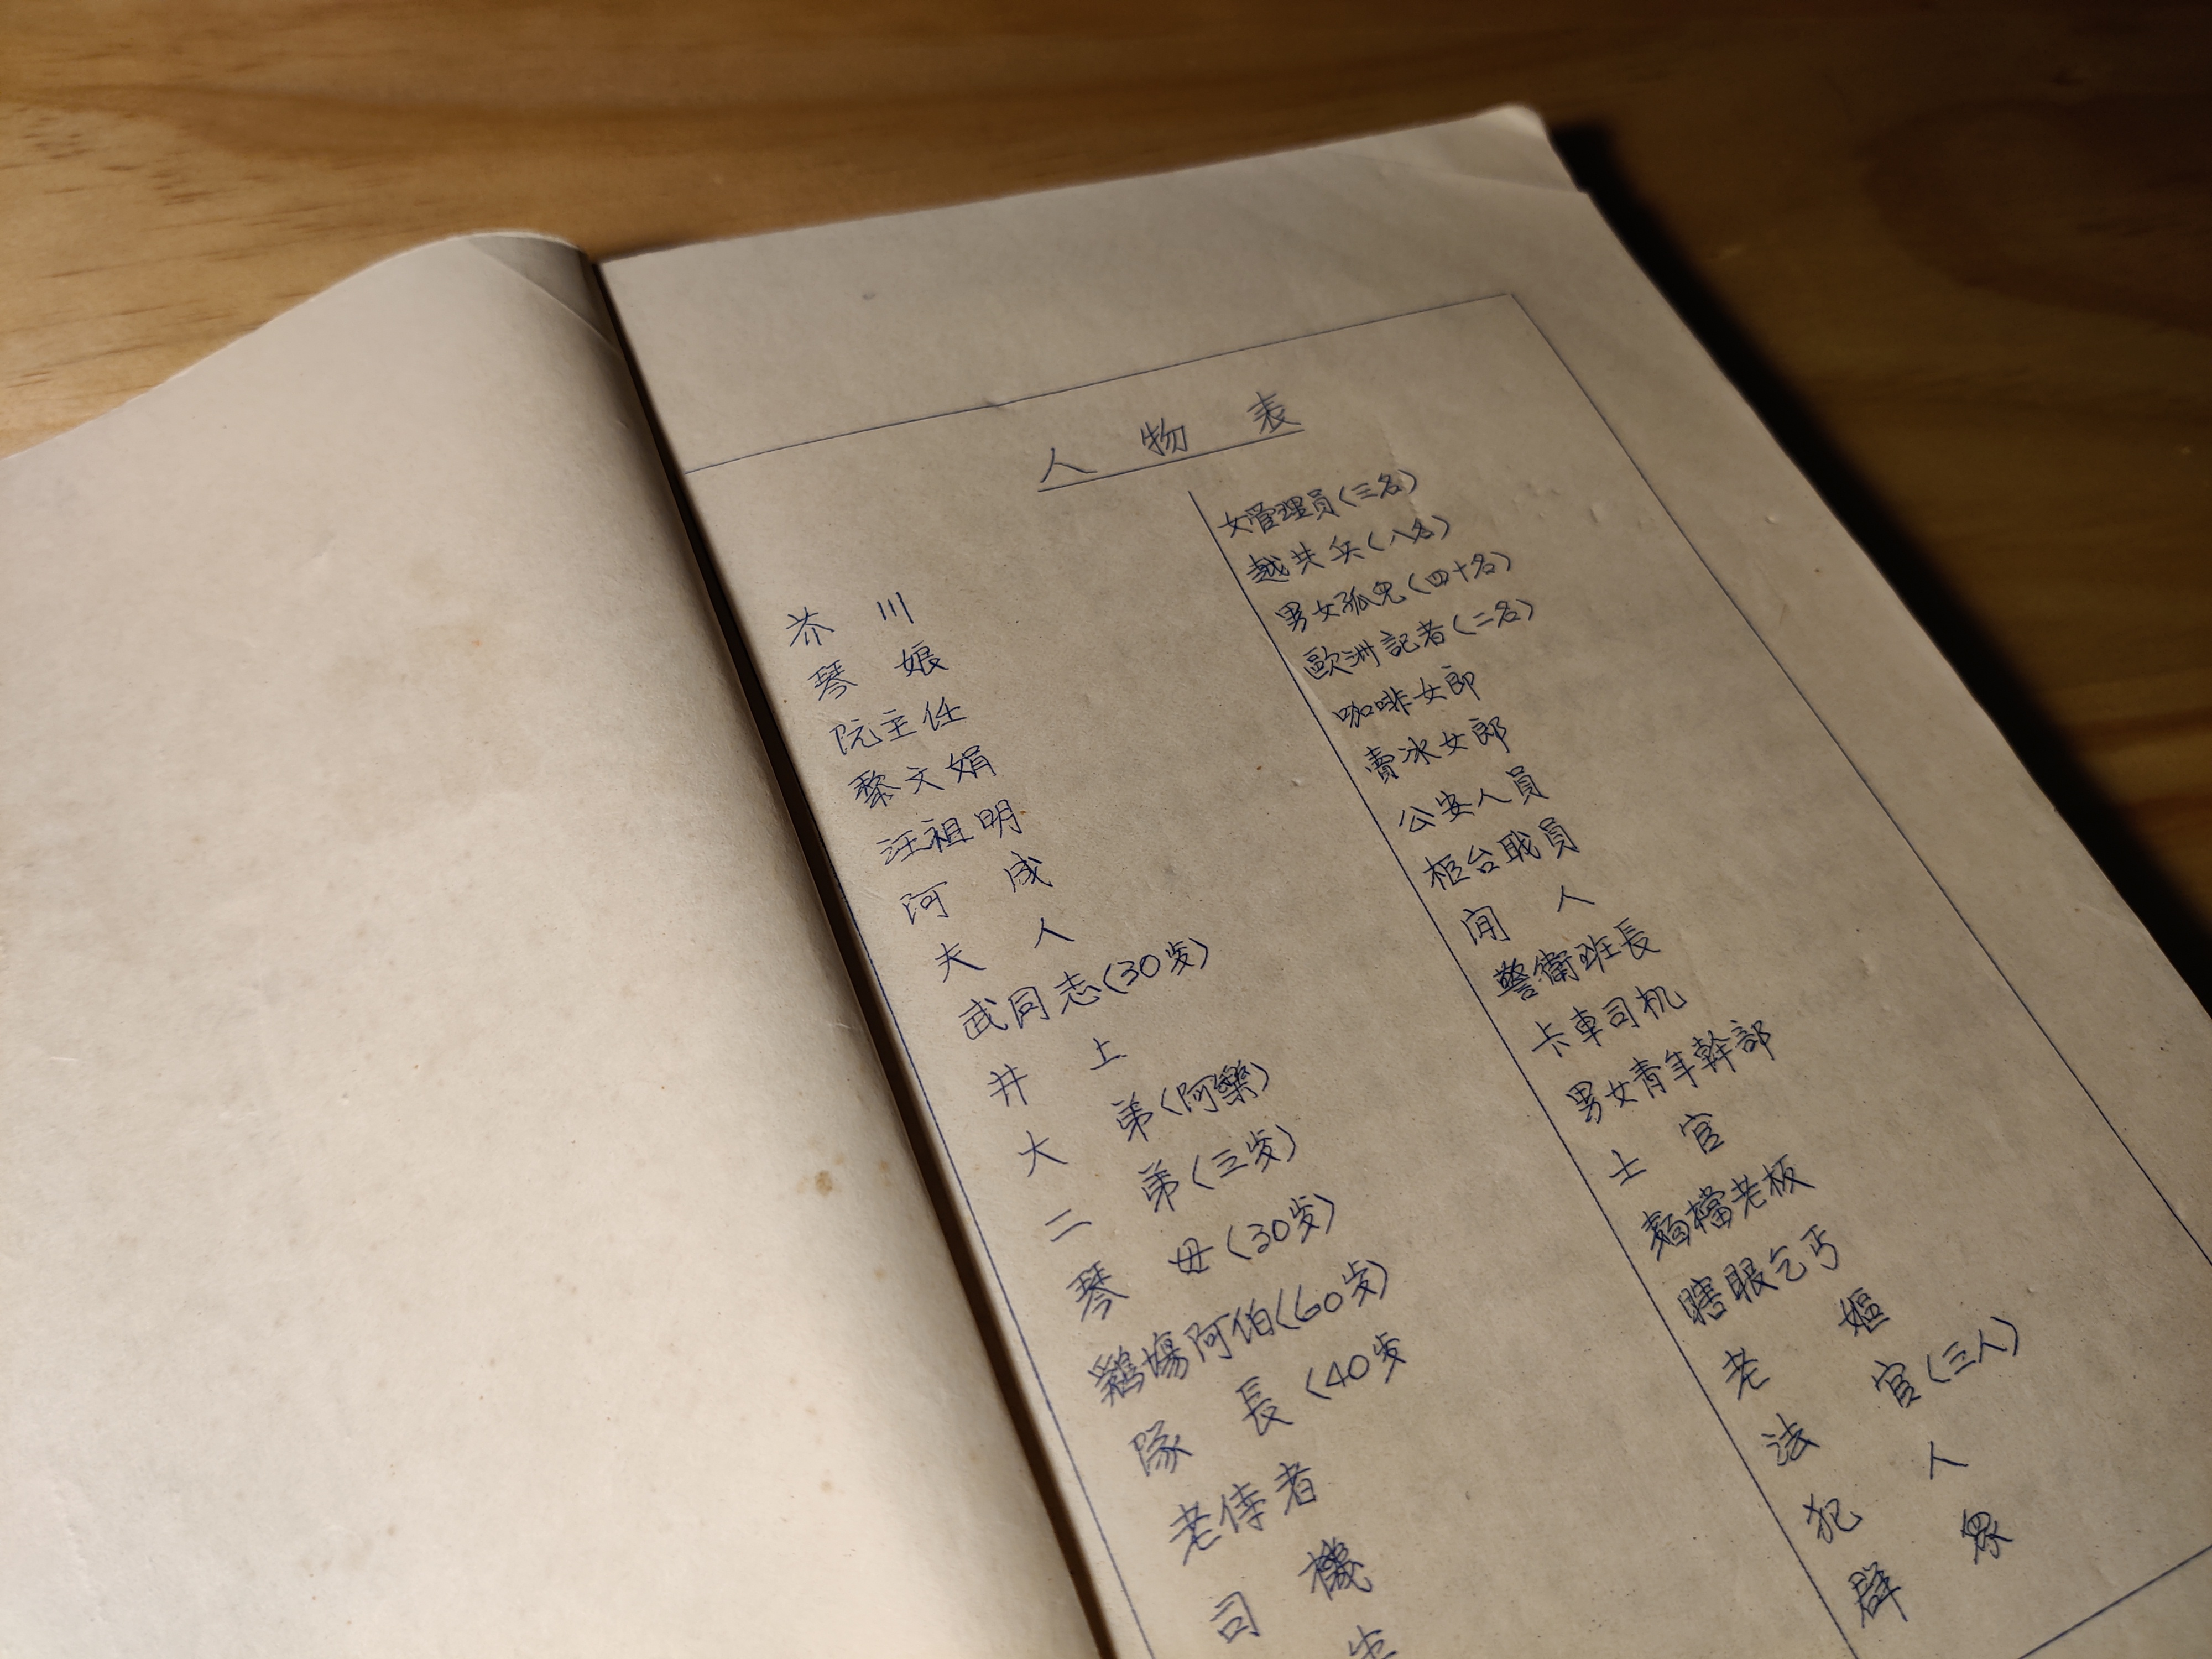 人物表
芥川
琴娘
阮主任
黎文娟
汪祖明
阿成
夫人
武同志(30岁)
井上
大弟(阿樂)
二弟(三岁)
琴母(30岁)
鷄場阿伯(60岁)
隊長(40岁
老侍者
司機
女管理員(三名)
越共兵(八名)
男女孤兒(四十名)
歐洲記者(二名)
咖啡女郎
賣冰女郎
公安人員
柜台职員
闲人
警衛班長
卡車司机
男女青年幹部
士官
麵檔老板
瞎眼乞丐
老嫗
法官(三人)
犯人
群眾